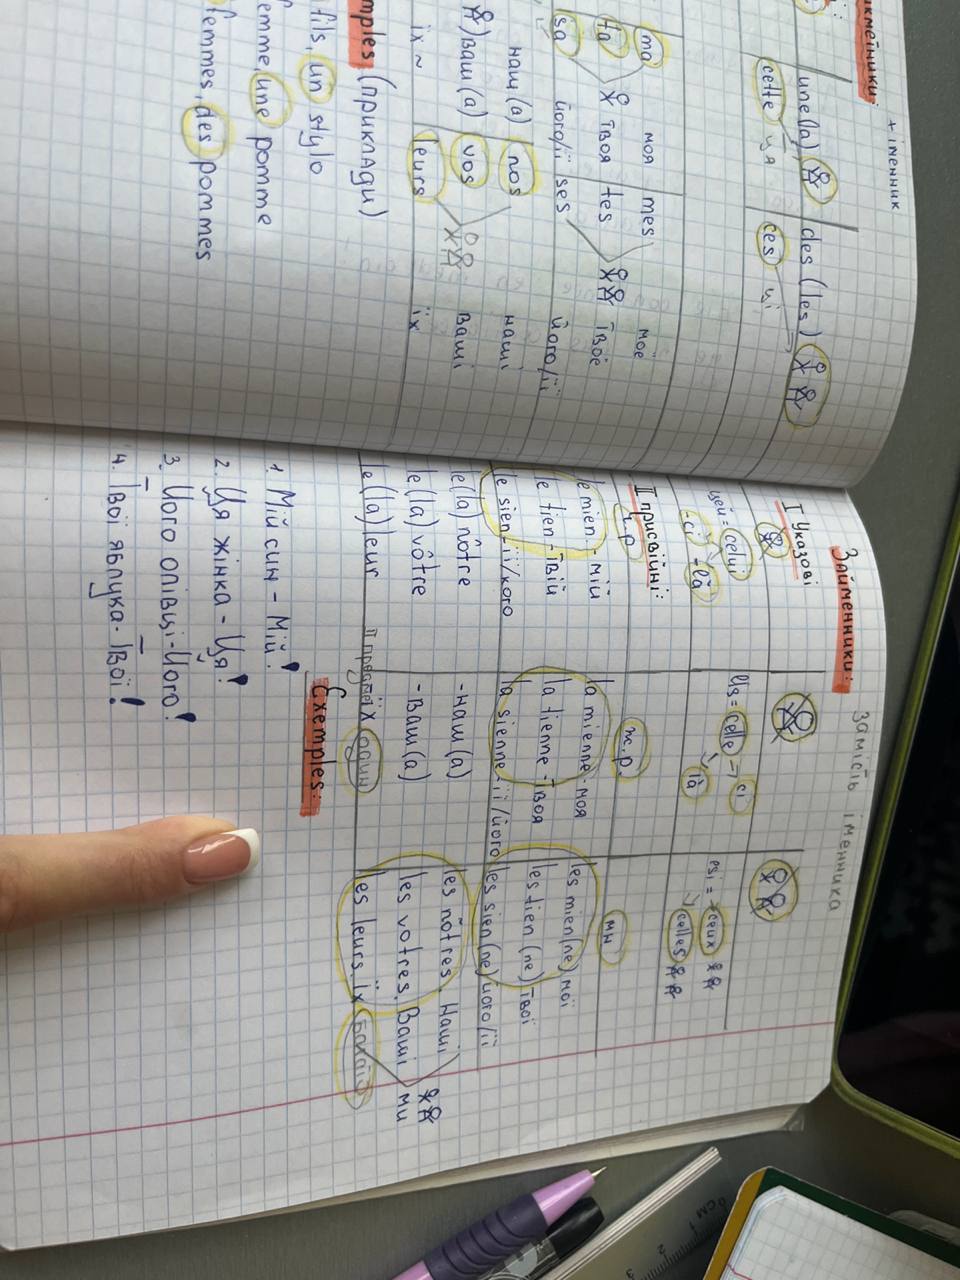 + іменник
une (la)
des (les)
cette ця
ces ці
ma
моя
mes
моє
ta
твоя
tes
твоє
sa
його/її
ses
його/її
наш (а)
nos
наші
Ваш (а)
vos
Ваші
їх ~
leurs
їх
(приклади)
fils, un stylo
une pomme
des pommes
Займенники: замість іменника
I Указові
цей = celui
-ci -là
Ця = celle - ci
là
ceux
celles
II присвійні:
ч.р
ж.р.
мн
le mien - мій
la mienne моя
les mien(ne) мої
le tien - твій
la tienne - твоя
les tien (ne) твої
le sien - її/його
la sienne - її/його
les sien (ne) його/її
le (la) nôtre
- наш (а)
les nôtres Наші
le (la) vôtre
- Ваш (а)
les votres. Ваші
ми
le (la) leur
один
les leurs. Їх
Exemples:
1. Мій син - Мій!
2. Ця жінка - Ця!
3. Його олівці - Його!
4. Твої яблука - Твої!
0 CM 1 2 3